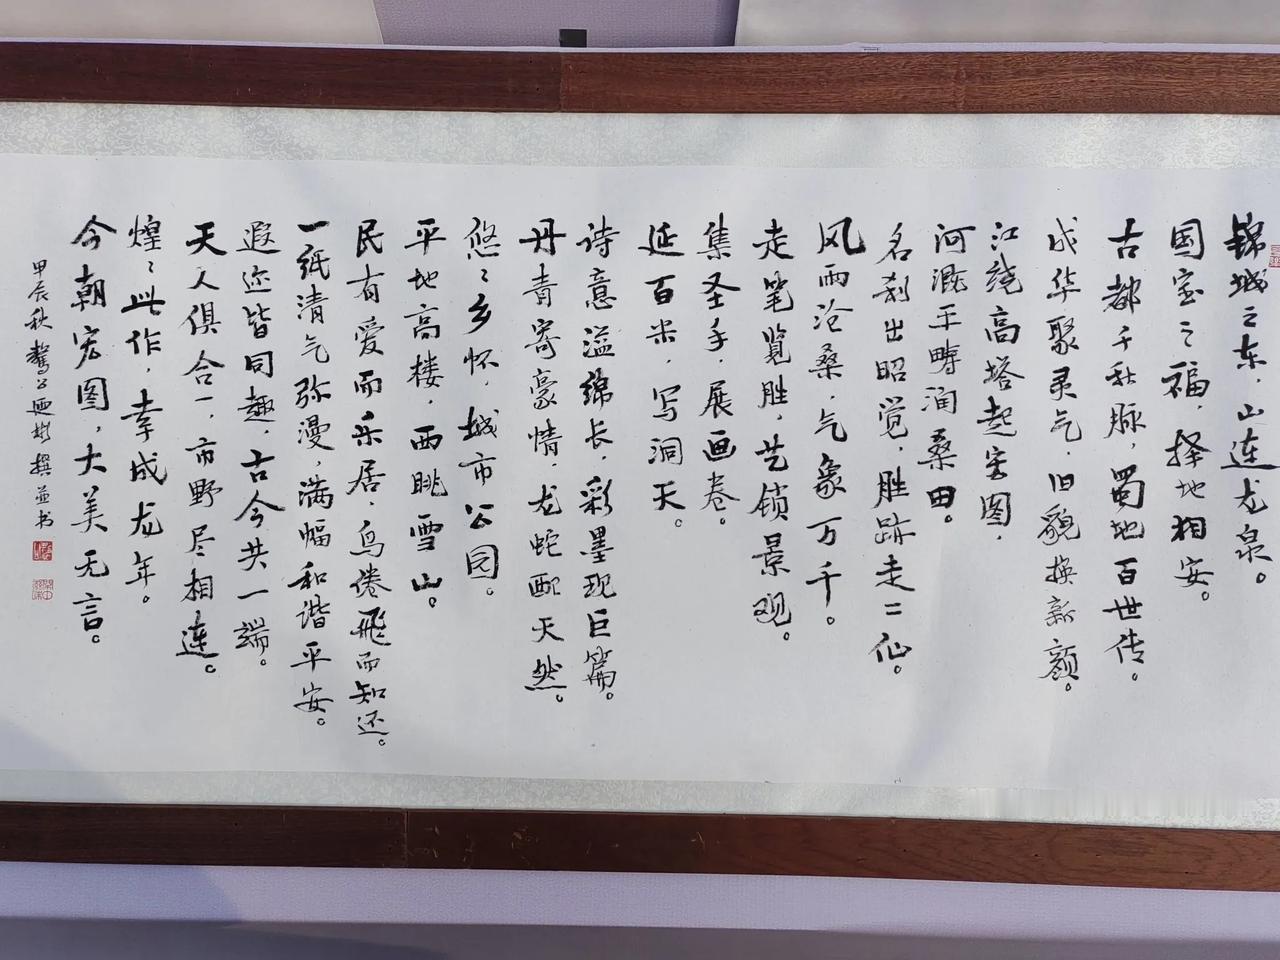 锦城之东，山连龙泉。
国宝之福，择地相安。
古都千秋脉，蜀地百世传。
成华聚灵气，旧貌换新颜。
江绕高塔起宏图，
河溉平畴润桑田。
名刹出昭觉，胜迹走二仙。
风雨沧桑，气象万千。
走笔览胜，艺锁景观。
集圣手，展画卷。
延百米，写洞天。
诗意溢绵长，彩墨现巨篇。
丹青寄豪情，龙蛇配天然。
悠〻乡怀，城市公园。
平地高楼，西眺雪山。
民有爱而乐居，鸟倦飞而知还。
一纸清气弥漫，满幅和谐平安。
遐迩皆同趣，古今共一端。
天人俱合一，市野尽相连。
煌〻此作，幸成龙年。
今朝宏图，大美无言。
甲辰秋 撰并书